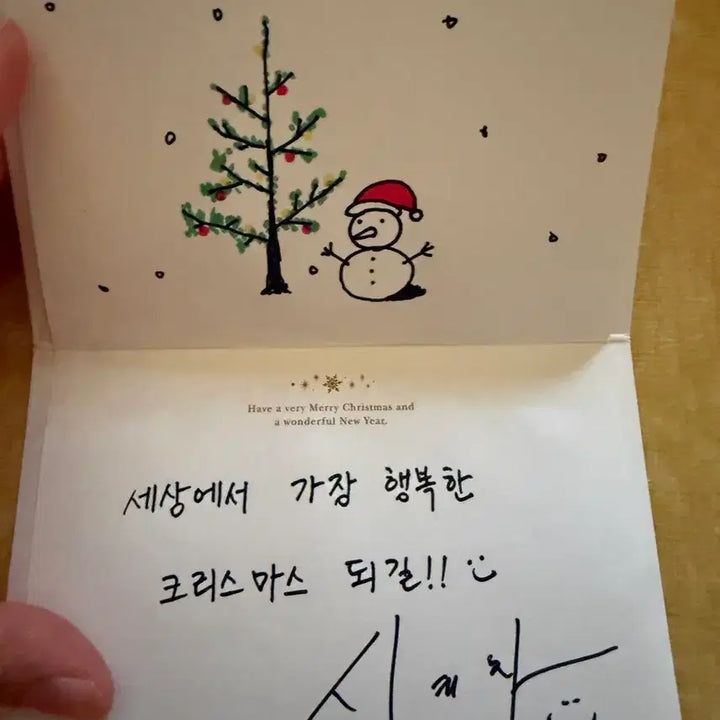 Have a very Merry Christmas and
a wonderful New Year.
세상에서 가장 행복한
크리스마스 되길!!